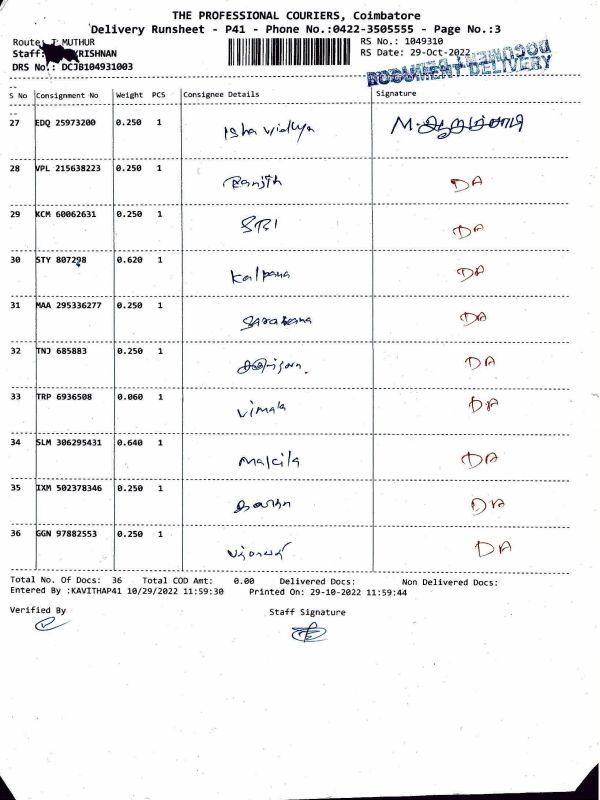 THE PROFESSIONAL COURIERS, Coimbatore
Delivery Runsheet - P41 - Phone No.:0422-3505555 - Page No.:3
Route: T MUTHUR
RS No.: 1049310
Staff: KRISHNAN
RS Date: 29-Oct-2022
DRS No.: DCJB104931003
DOCUMENT DELIVERY
S No Consignment No Weight PCS Consignee Details Signature
27 EDQ 25973200 0.250 1 Isha Vidhya
28 VPL 215638223 0.250 1 Ranjith DA
29 KCM 60062631 0.250 1 SRI DA
30 STY 807298 0.620 1 Kalpana DA
31 MAA 295336277 0.250 1 DA
32 TNJ 685883 0.250 1 DA
33 TRP 6936508 0.060 1 Vimala DA
34 SLM 306295431 0.640 1 DA
35 IXM 502378346 0.250 1 DA
36 GGN 97882553 0.250 1 DA
Total No. Of Docs: 36 Total COD Amt: 0.00 Delivered Docs: Non Delivered Docs:
Entered By :KAVITHAP41 10/29/2022 11:59:30 Printed On: 29-10-2022 11:59:44
Verified By Staff Signature